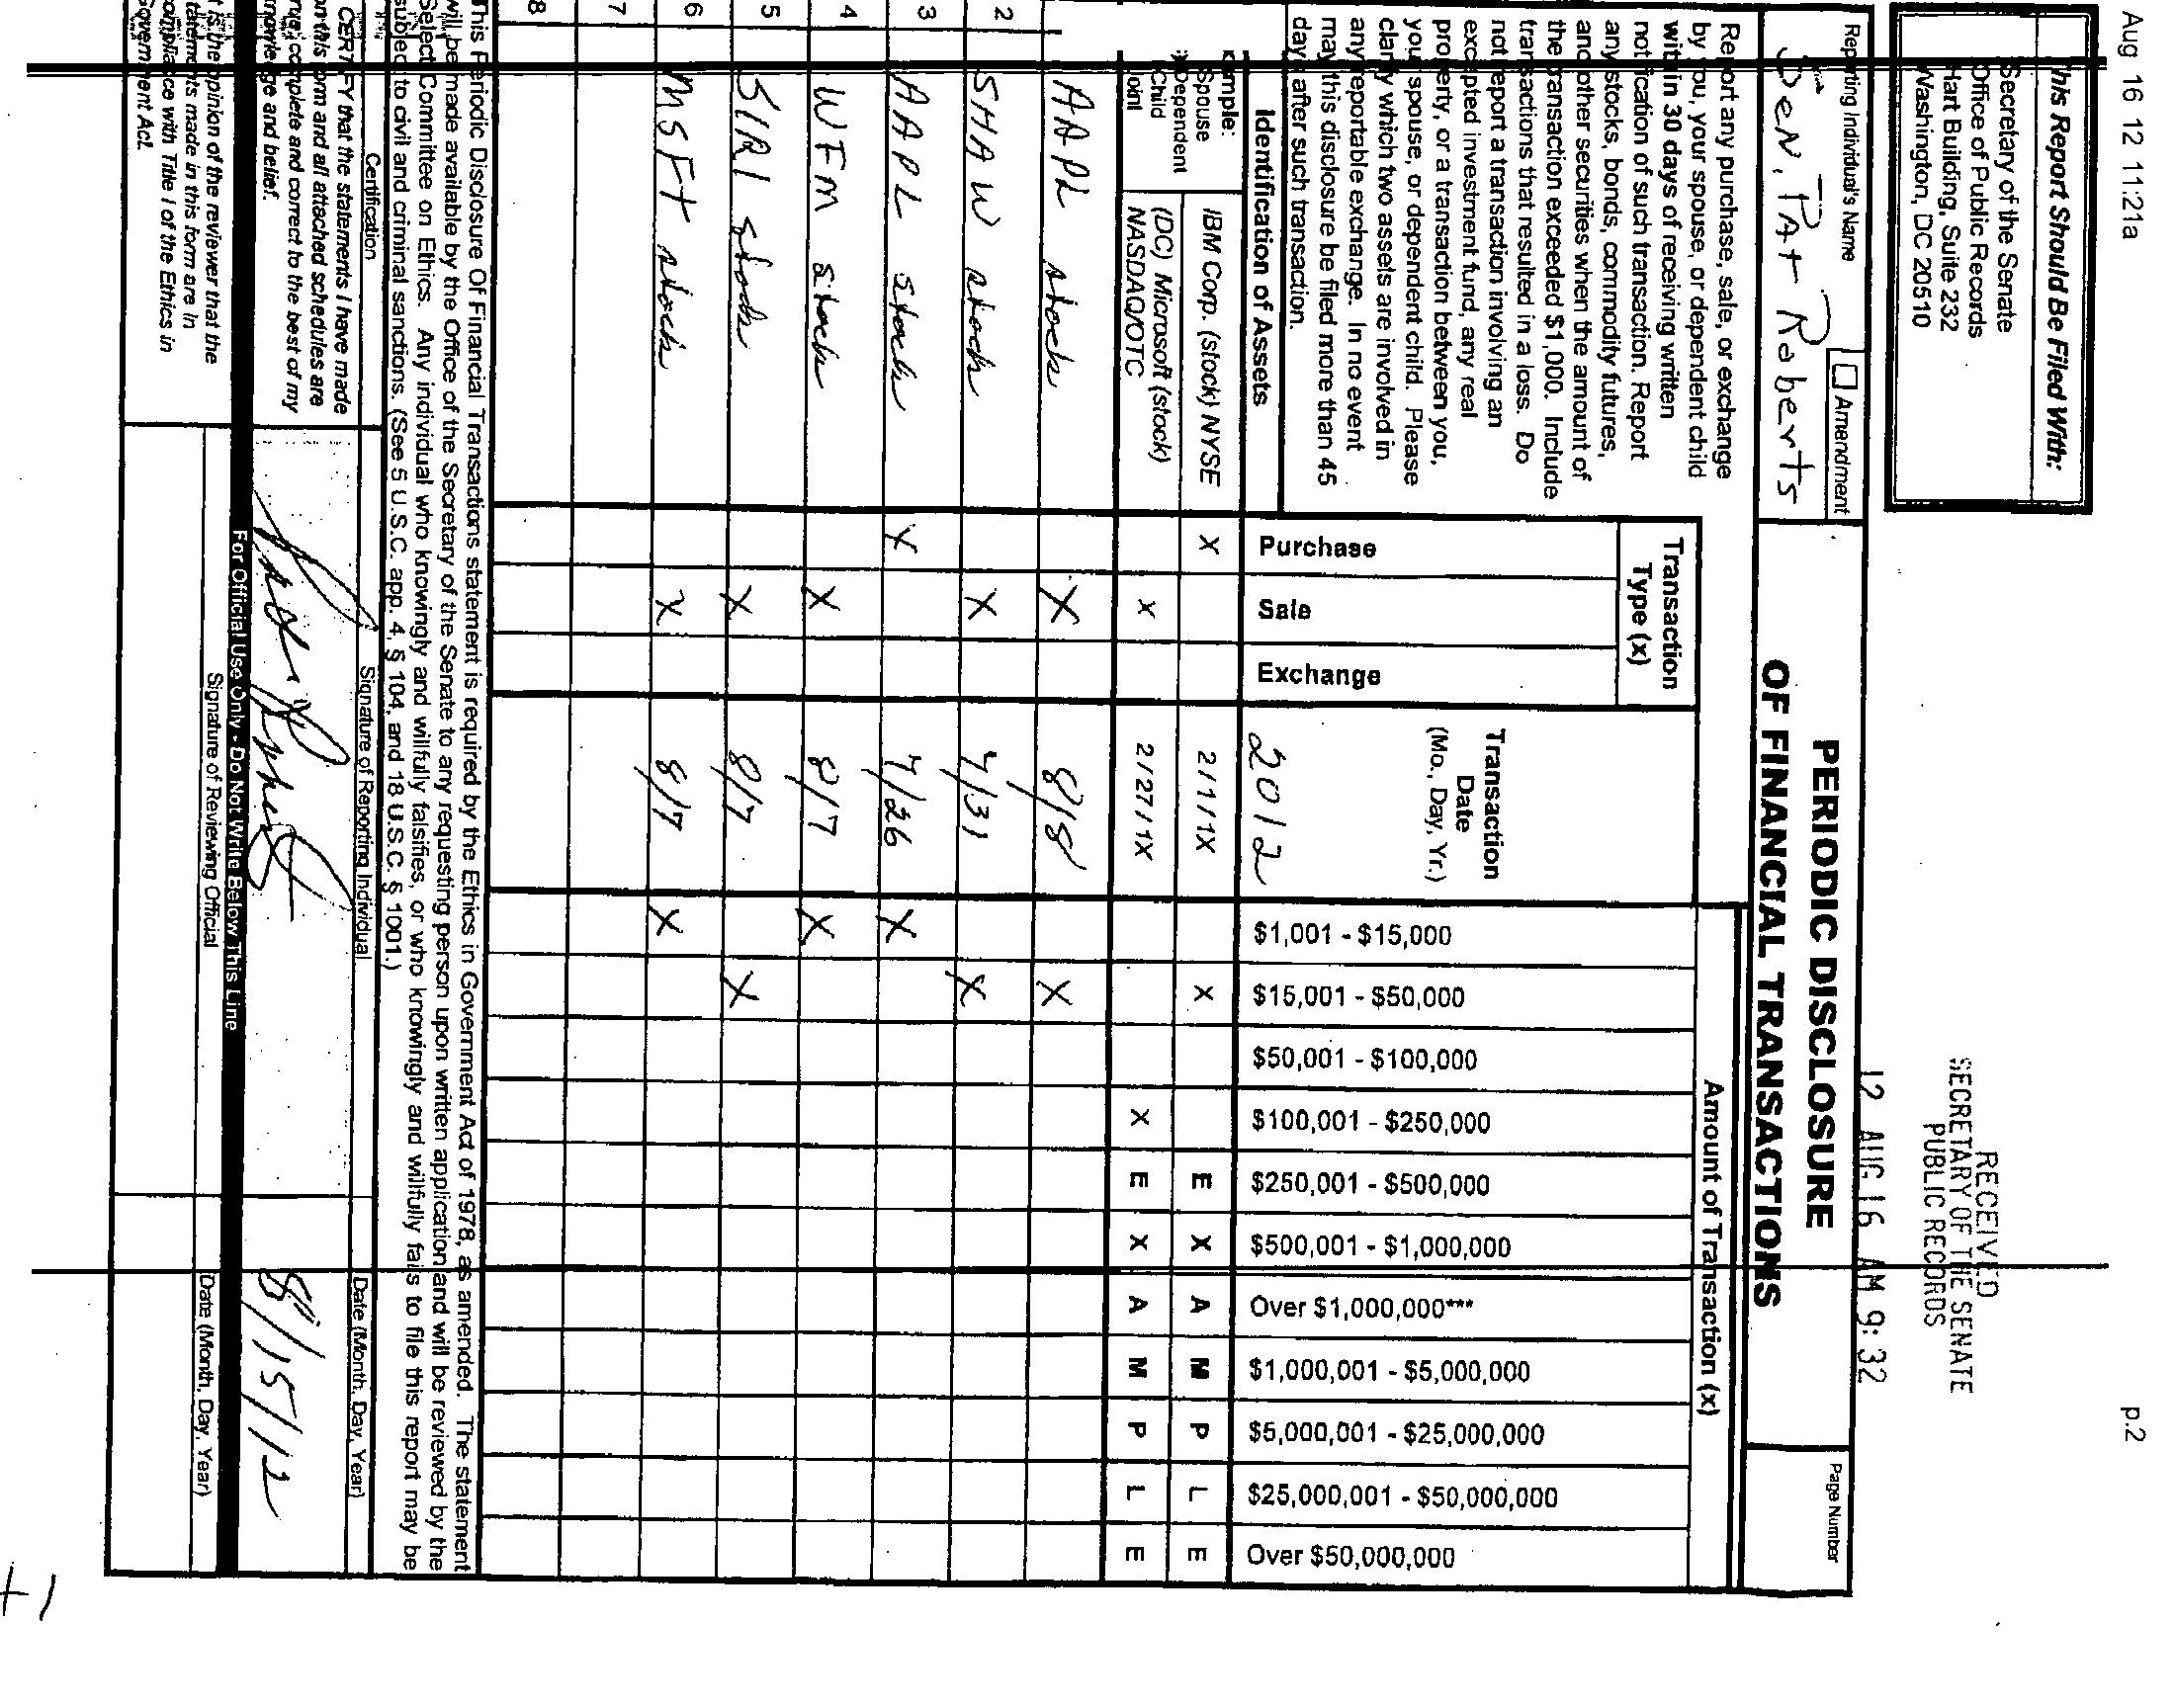 Aug 16 12 11:21a
p.2
This Report Should Be Filed With:
Secretary of the Senate
Office of Public Records
Hart Building, Suite 232
Washington, DC 20510
RECEIVED
SECRETARY OF THE SENATE
PUBLIC RECORDS
12 AUG 16 AM 9:32
Reporting Individual's Name
Amendment
Sen. Pat Roberts
PERIODIC DISCLOSURE
OF FINANCIAL TRANSACTIONS
Page Number
Report any purchase, sale, or exchange
by you, your spouse, or dependent child
within 30 days of receiving written
notification of such transaction. Report
any stocks, bonds, commodity futures,
and other securities when the amount of
the transaction exceeded $1,000. Include
transactions that resulted in a loss. Do
not report a transaction involving an
excepted investment fund, any real
property, or a transaction between you,
your spouse, or dependent child. Please
clarify which two assets are involved in
any reportable exchange. In no event
may this disclosure be filed more than 45
days after such transaction.
Identification of Assets
Transaction
Type (x)
Purchase
Sale
Exchange
Transaction
Date
(Mo., Day, Yr.)
2012
Amount of Transaction (x)
$1,001 - $15,000
$15,001 - $50,000
$50,001 - $100,000
$100,001 - $250,000
$250,001 - $500,000
$500,001 - $1,000,000
Over $1,000,000***
$1,000,001 - $5,000,000
$5,000,001 - $25,000,000
$25,000,001 - $50,000,000
Over $50,000,000
xample:
Spouse
Dependent
Child
oint
IBM Corp. (stock) NYSE X 2/1/1X X E X A M P L E
(DC) Microsoft (stock)
NASDAQ/OTC X 2/27/1X X E X A M P L E
AAPL stock X 8/8 X
2 SHAW stock X 7/31 X
3 AAPL stock X 7/26 X
4 WFM stock X 8/7 X
5 SIRI stock X 8/7 X
6 MSFT stock X 8/7 X
7
8
This Periodic Disclosure Of Financial Transactions statement is required by the Ethics in Government Act of 1978, as amended. The statement
will be made available by the Office of the Secretary of the Senate to any requesting person upon written application and will be reviewed by the
Select Committee on Ethics. Any individual who knowingly and willfully falsifies, or who knowingly and willfully fails to file this report may be
subject to civil and criminal sanctions. (See 5 U.S.C. app. 4, § 104, and 18 U.S.C. § 1001.)
Certification
Signature of Reporting Individual
Date (Month, Day, Year)
I CERTIFY that the statements I have made
on this form and all attached schedules are
true, complete and correct to the best of my
knowledge and belief.
8/15/12
For Official Use Only - Do Not Write Below This Line
It is the opinion of the reviewer that the
statements made in this form are in
compliance with Title I of the Ethics in
Government Act.
Signature of Reviewing Official
Date (Month, Day, Year)
+1